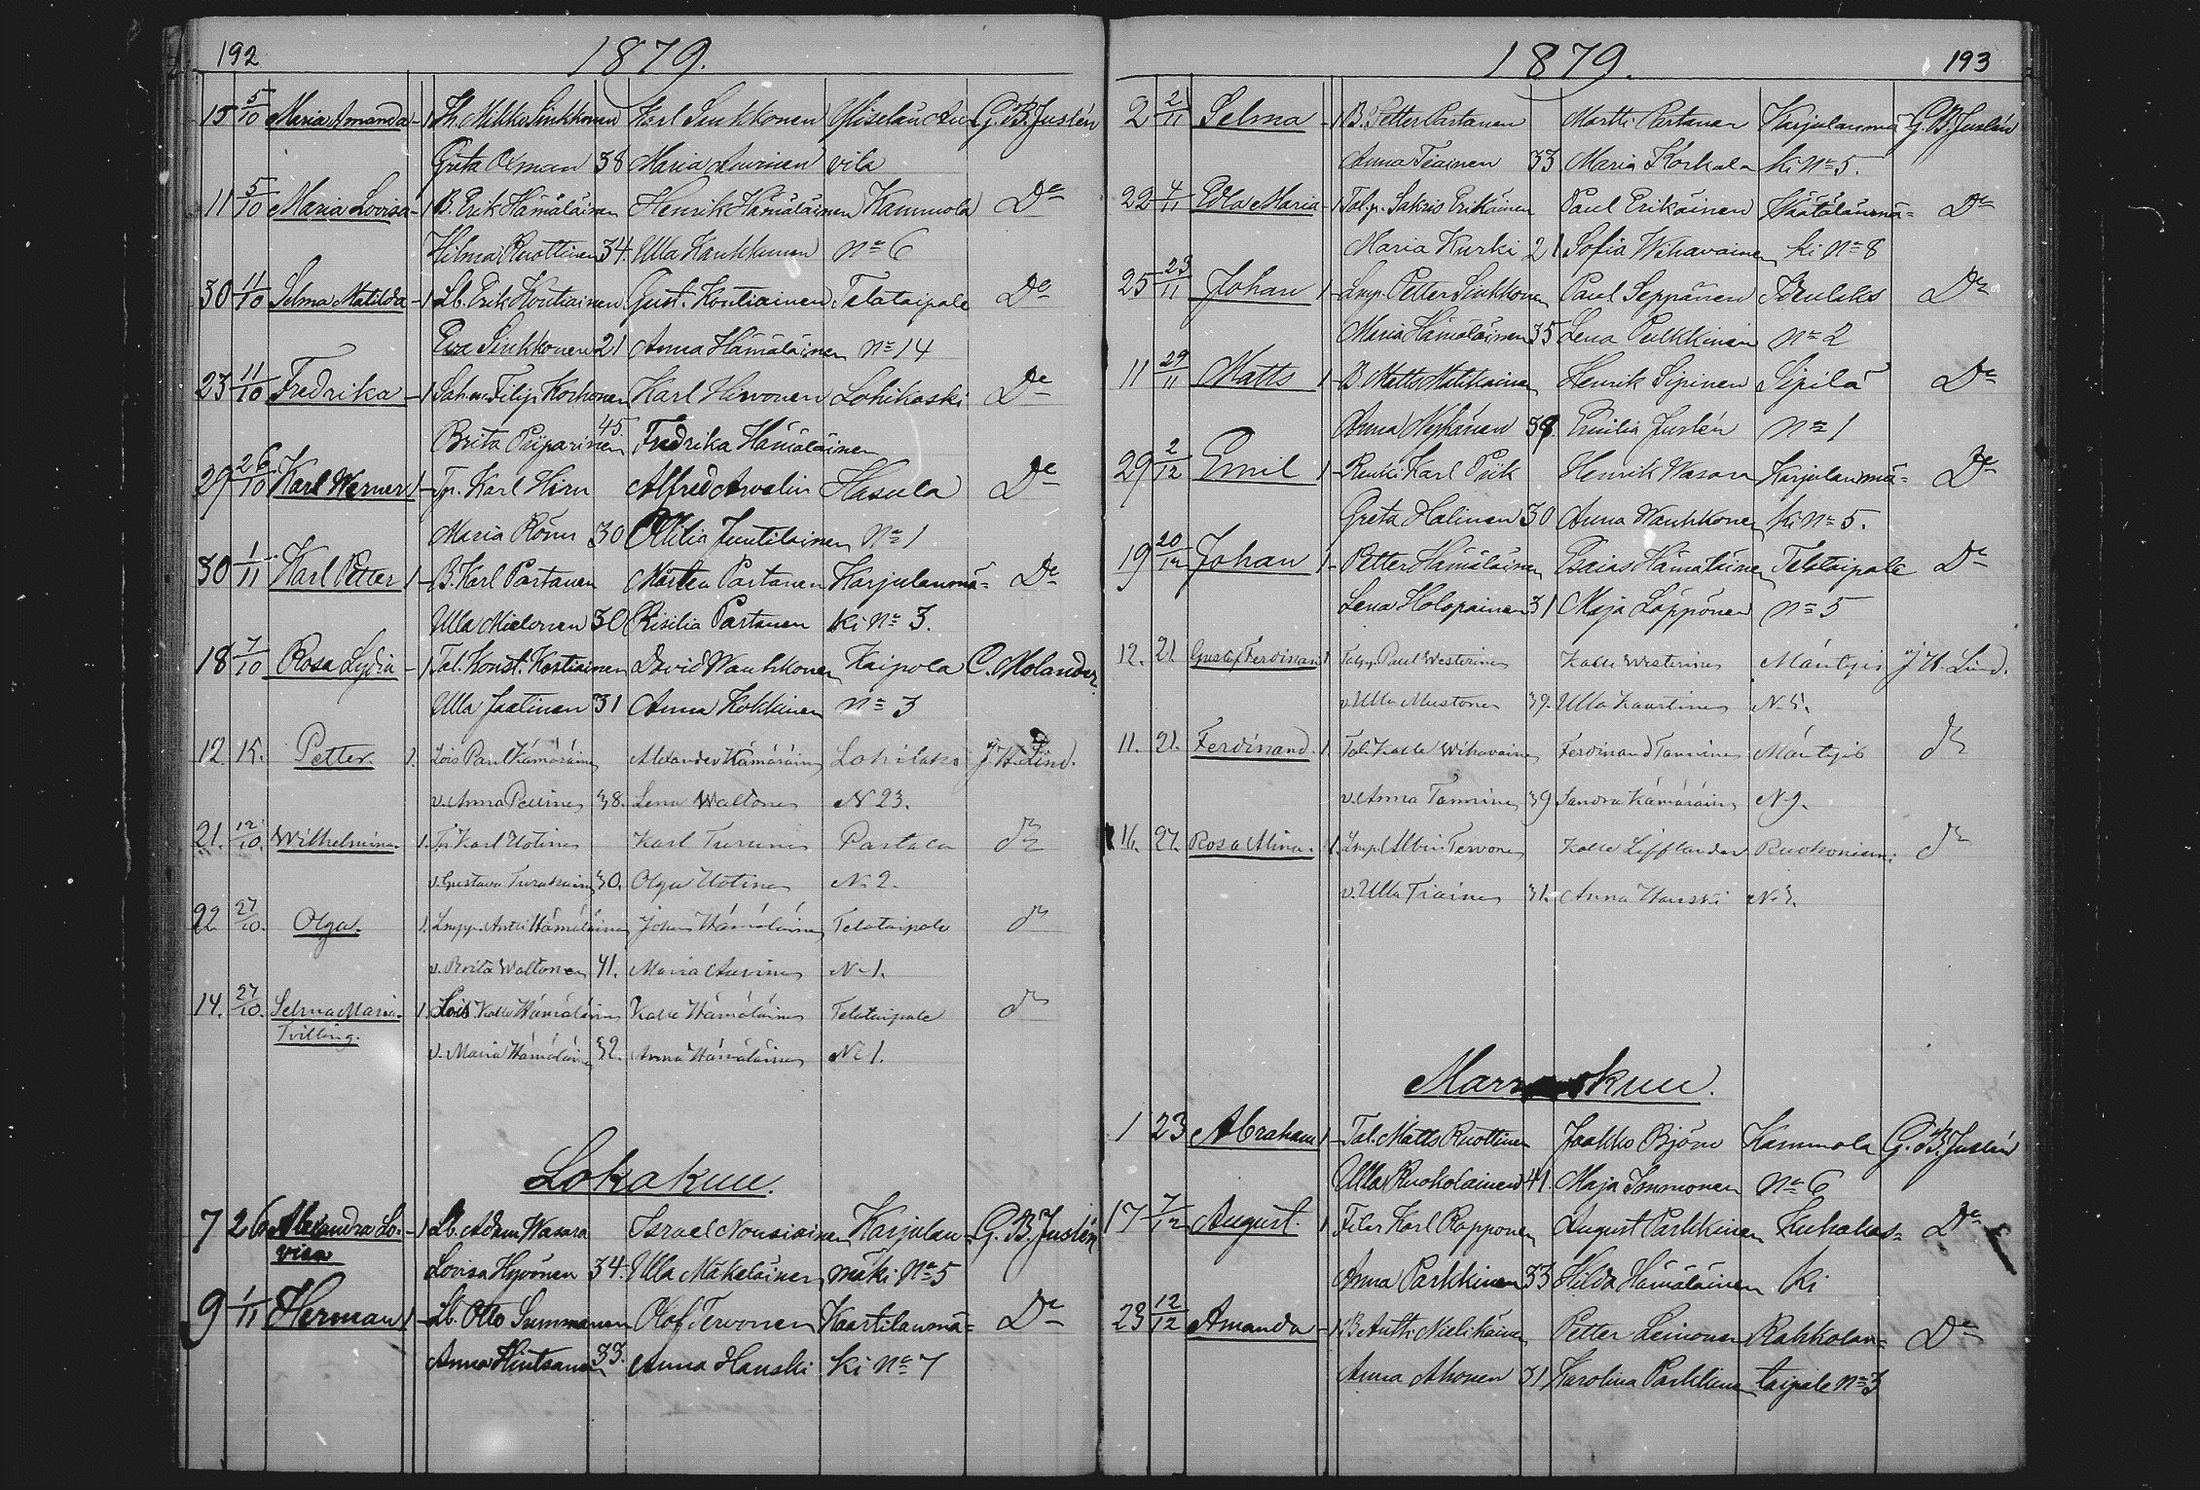 192
1879.
15 5/10 Maria Amanda - 1 Th. Mikko Sinkkonen Karl Sinkkonen G. B. Juslén
Greta 38 Maria Auvinen vila
11 5/10 Maria Lovisa - 1 B. Erik Hämäläinen Henrik Hämäläinen Kammola Do
Hilma Ruottinen 34. Ulla Kaukkunen No 6
30 11/10 Selma Matilda - 1 Lb. Erik Koutiainen Gust. Koutiainen Telataipale Do
Eva Sinkkonen 21 Anna Hämäläinen No 14
23 11/10 Fredrika - 1 Filip Korhonen Karl Hirvonen Lohikoski Do
Brita Piiparinen 45 Fredrika Hämäläinen
29 26/10 Karl Werner 1 - Tp. Karl Hirn Alfred Arvelin Hasula Do
Maria 30 Ottilia Juutilainen No 1
30 1/11 Karl Petter 1 - B. Karl Partanen Mårten Partanen Harjulanmä= Do
Ulla Mielonen 30 Risilia Partanen ki No 3.
18 7/10 Rosa Lydia - 1 Tal. Konst. Kostiainen David Wauhkonen Kaipola C. Molander
Ulla Jaatinen 31 Anna Kokkinen No 3
12 K. Petter 1. Lois Paul Kämäräinen Alexander Kämäräinen Lohilaks J. H. Lind.
v. Anna Pellinen 38. Lena Waltonen N 23.
21. 12/10. Wilhelmina. 1. Karl Hotinen Karl Turunen Partala do
v. Gustava 30. Olga Hotinen N. 2.
22 27/10. Olga. 1. Lmpp. Antti Hämäläinen Johan Hämäläinen Telataipale do
v. Brita Waltonen 41. Maria Auvinen N. 1.
14. 27/10. Selma Maria. 1. Lois Kalle Hämäläinen Kalle Hämäläinen Telataipale do
Tvilling.
v. Maria Hämäläinen 32. Anna Hämäläinen N. 1.
Lokakuu.
7 26 Alexandra Lo- - 1 Lb. Adam Wasara Israel Nousiainen Harjulan- G. B. Juslén
visa
Lovisa Hyvönen 34. Ulla Mäkeläinen mäki No 5
9 1/11 Herman 1 - Lb. Otto Summanen Olof Tervonen Kaartilanmä= Do
Anna Hintsanen 33. Anna Hanski ki No 7
193
1879.
2 2/11 Selma - 1 B. Petter Partanen Martti Partanen Harjulanmä G. B. Juslén
Anna Tiainen 33 Maria Korhola ki No 5.
22 4/11 Edla Maria - 1 Tal.p. Sakris Erikäinen Paul Erikäinen Säätälänmä= Do
Maria Kurki 21 Sofia Wihavainen ki No 8
25 23/11 Johan 1 - Lmp. Petter Sinkkonen Paul Seppänen Do
Maria Hämäläinen 35 Lena Pulkkinen No 2
11 29/11 Matts 1 - B. Matts Matikainen Henrik Sipinen Sipilä Do
Anna 38 Emilia Juslén No 1
29 2/12 Emil 1 - Renki Karl Henrik Wasara Harjulanmä= Do
Greta Halinen 30 Anna Wauhkonen ki No 5.
19 20/12 Johan 1 - Petter Hämäläinen Esaias Hämäläinen Telataipale Do
Lena Holopainen 31 Maja Läppönen No 5
12. 21 Gustaf Ferdinand 1 Paul Westerinen Kalle Westerinen Mäntyis J. H. Lind.
v. Ulla Mustonen 39. Ulla Kaartinen N. 5.
11. 21. Ferdinand. 1. Tal. Kalle Wihavainen Ferdinand Tanninen Mäntyis do
v. Anna Tanninen 39 Sandra Kämäräinen N. 9.
16. 27. Rosa Mina. 1. Lmp. Albin Tervonen Kalle Lifflander Ruokoniem: do
v. Ulla Tiainen 31. Anna Hanski N. 3.
Marraskuu.
1 23 Abraham 1 - Tal. Matts Ruottinen Jaakko Björn Kammola G. B. Juslén
Ulla Ruokolainen 41. Maja Immonen No 6
17 7/12 August. 1 Karl Rapponen August Parkkinen Kuhakos= Do
Anna Parkkinen 33 Hilda Hämäläinen ki
23 12/12 Amanda - 1 B. Antti Nielikäinen Petter Leinonen Rahkolan= Do
Anna Ahonen 31 Karolina Parkkinen taipale No 3